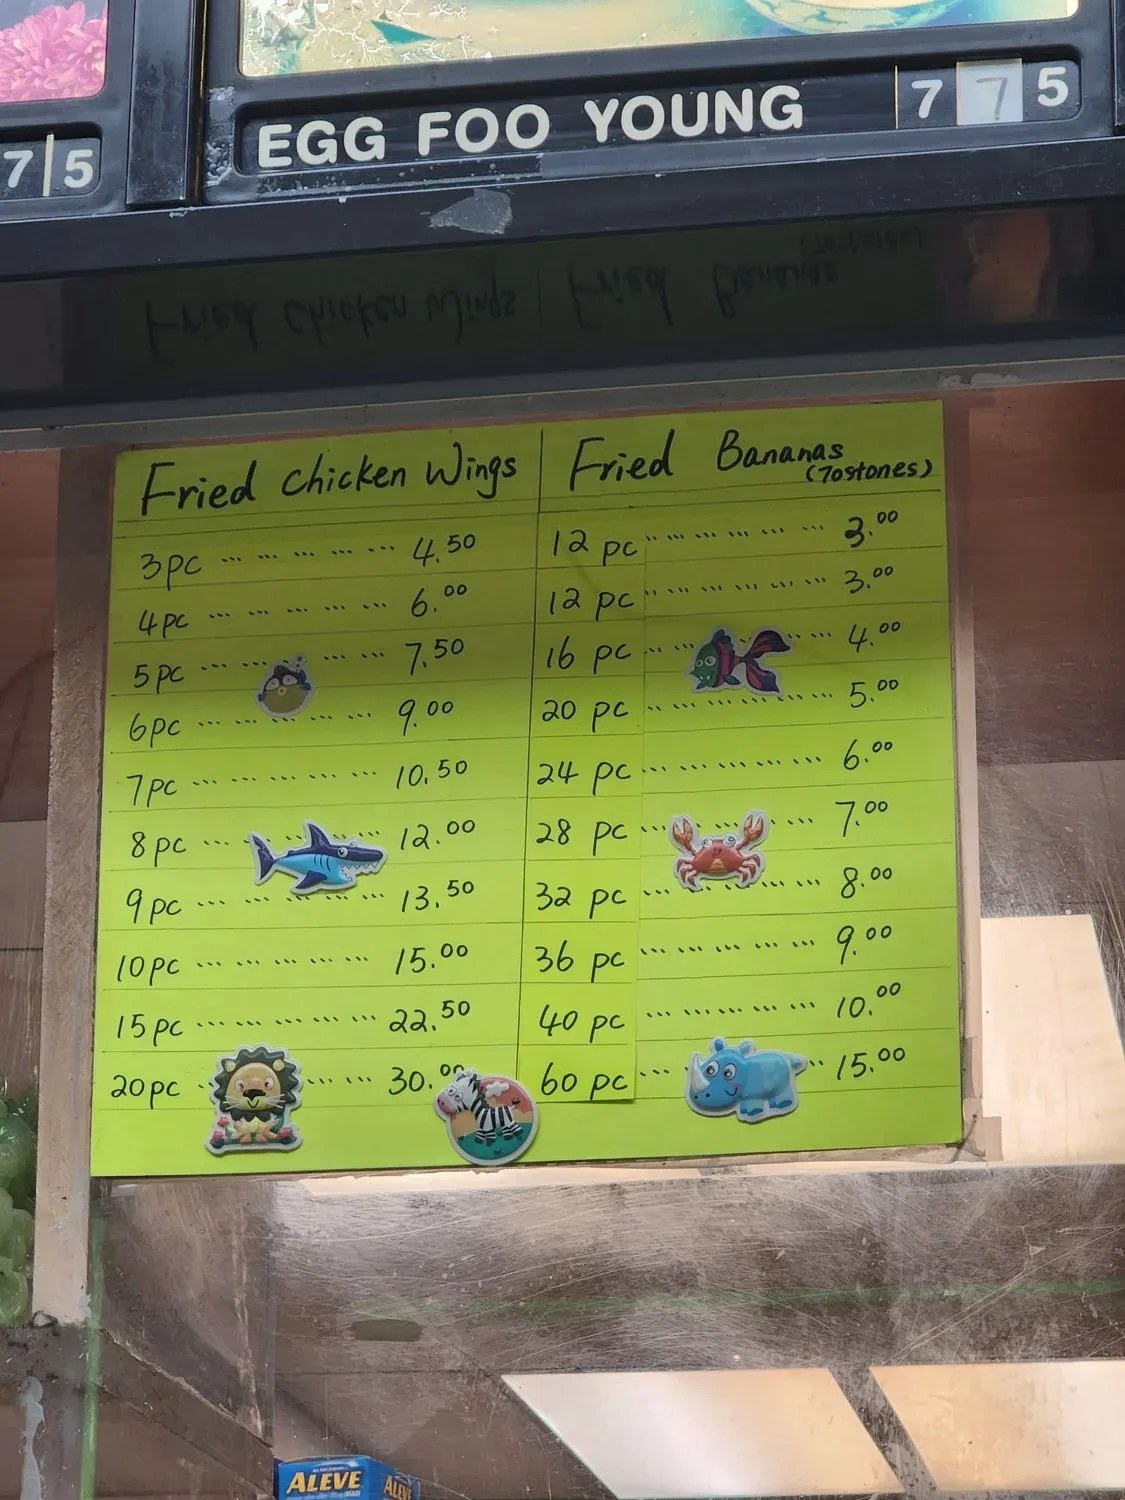 7 5
EGG FOO YOUNG 7 7 5
Fried Chicken Wings
3pc ... ... ... ... ... 4.50
4pc ... ... ... ... ... 6.00
5pc ... ... ... ... 7.50
6pc ... ... ... ... ... 9.00
7pc ... ... ... ... ... 10.50
8pc ... ... ... 12.00
9pc ... ... ... ... ... 13.50
10pc ... ... ... ... ... 15.00
15pc ... ... ... ... ... 22.50
20pc ... ... ... 30.00
Fried Bananas
(Tostones)
12 pc ... ... ... ... ... 3.00
12 pc ... ... ... ... ... 3.00
16 pc ... ... ... ... 4.00
20 pc ... ... ... ... ... 5.00
24 pc ... ... ... ... ... 6.00
28 pc ... ... ... 7.00
32 pc ... ... ... ... ... 8.00
36 pc ... ... ... ... ... 9.00
40 pc ... ... ... ... ... 10.00
60 pc ... ... 15.00
ALEVE
ALEVE